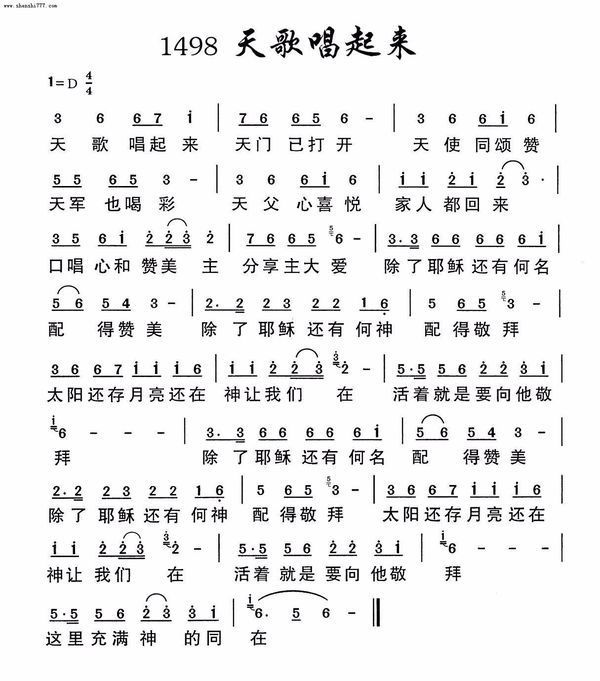 www.shenshi777.com
1498 天歌唱起来
1=D 4/4
3 6 67 i | 76 65 6 - | 3 6 6i 6 |
天 歌 唱起 来 天门 已打 开 天 使 同颂 赞
55 65 5 - | 3 6 6i 6 | ii 2i 2 3· |
天军 也喝 彩 天 父 心喜 悦 家人 都回 来
35 6i 223 2 | 76 65 6 - | 3·3 66 66 6i |
口唱 心和 赞美 主 分享主大 爱 除了耶稣还有何名
56 54 3 - | 2·2 23 22 16 |
配 得赞 美 除了 耶稣 还有 何神 配得敬 拜
36 67 ii ii
太阳还存月亮还在 神让我们 在 活着就是要向他敬
6 - - - | 3·3 66 66 6i | 56 54 3 - |
拜 除了耶稣还有 何名 配 得赞 美
2·2 23 22 16
除了 耶稣 还有 何神 配 得敬 拜 太阳还存月亮还在
ii 223
神让 我们 在 活着 就是 要向 他敬 拜
5·5 56 2 3 3i | 6· 5 6 - ‖
这里 充满 神 的同 在